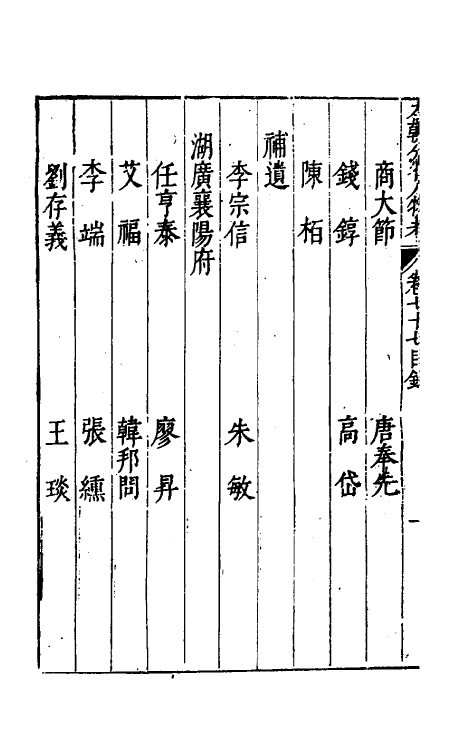 本朝分省人物考 卷七十七目錄 一
商大節 唐奉先
錢錞 高岱
陳柏
補遺
李宗信 朱敏
湖廣襄陽府
任亨泰 廖昇
艾福 韓邦問
李端 張纁
劉存義 王琰